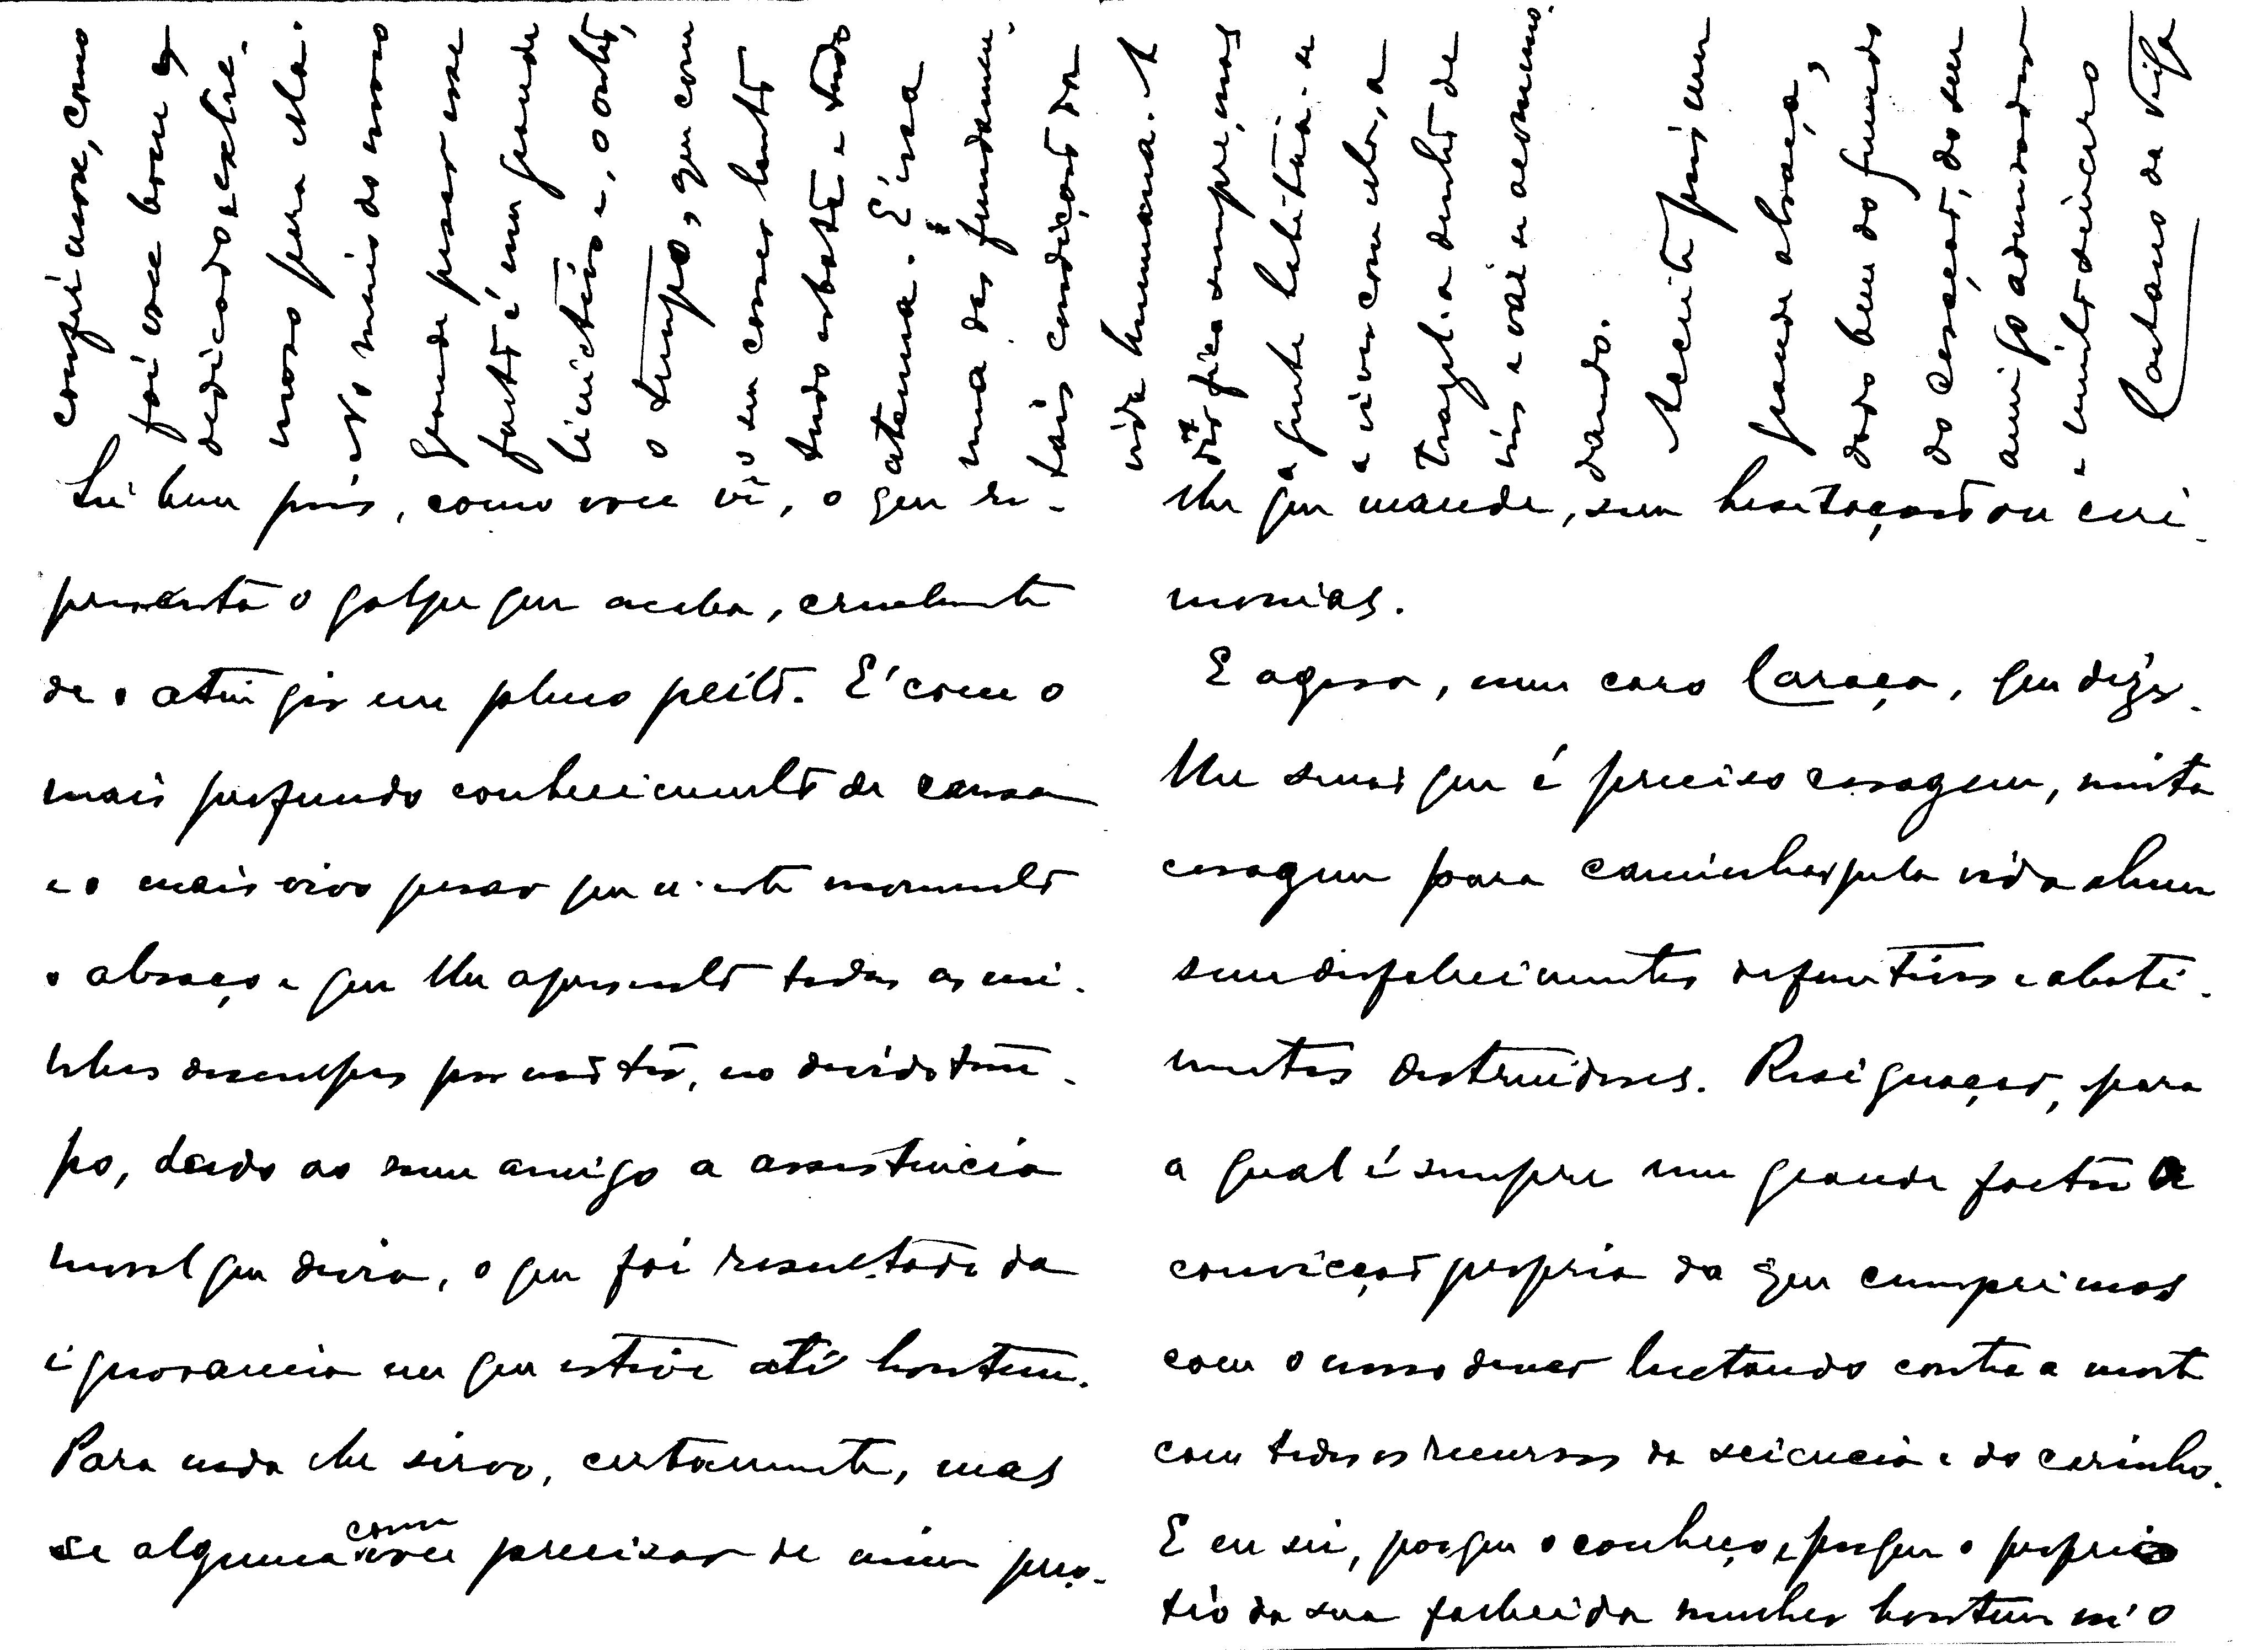 Sei bem pois, como voce vê, o que re-
presenta o golpe que acaba, cruelmente
de o atingir em pleno peito. É com o
mais profundo conhecimento de causa
e o mais vivo pesar que n'este momento
o abraço e que lhe apresento todas as mi-
nhas desculpas por não ter, no devido tem-
po, dado ao meu amigo a assistencia
moral que devia, o que foi resultado da
ignorancia em que estive até hontem.
Para nada lhe sirvo, certamente, mas
se alguma cousa voce precisar de mim peço-
lhe que mande, sem hesitação ou ceri-
monias.
E agora, meu caro Caraça, que dizer-
lhe senão que é preciso coragem, muita
coragem para caminhar pela vida alem
sem desfalecimentos definitivos e abati-
mentos destruidores. Resignação, para
a qual é sempre um grande factor a
convicção propria de que cumprimos
com o nosso dever luctando contra a morte
com todos os recursos da sciencia e do carinho.
E eu sei, porque o conheço e porque o proprio
tio da sua fallecida mulher hontem m'o
confirmasse, como
foi voce bom e
dedicado e extre-
moso para ela.
No meio do nosso
grande pesar esse
facto é um grande
lenictivo e, o outro,
o tempo, que com
o seu correr lento
tudo esbate e tudo
atenua. É essa
uma das fundamen-
tais condições da
vida humana. A
dôr fica sempre, mas
a gente habitua-se
a viver com ela, a
trazel-a dentro de
nós e vai-se acomo-
dando.
Aceite pois um
grande abraço,
dado bem do fundo
do coração, do seu
amigo admirador
e muito sincero
Caetano da Veiga